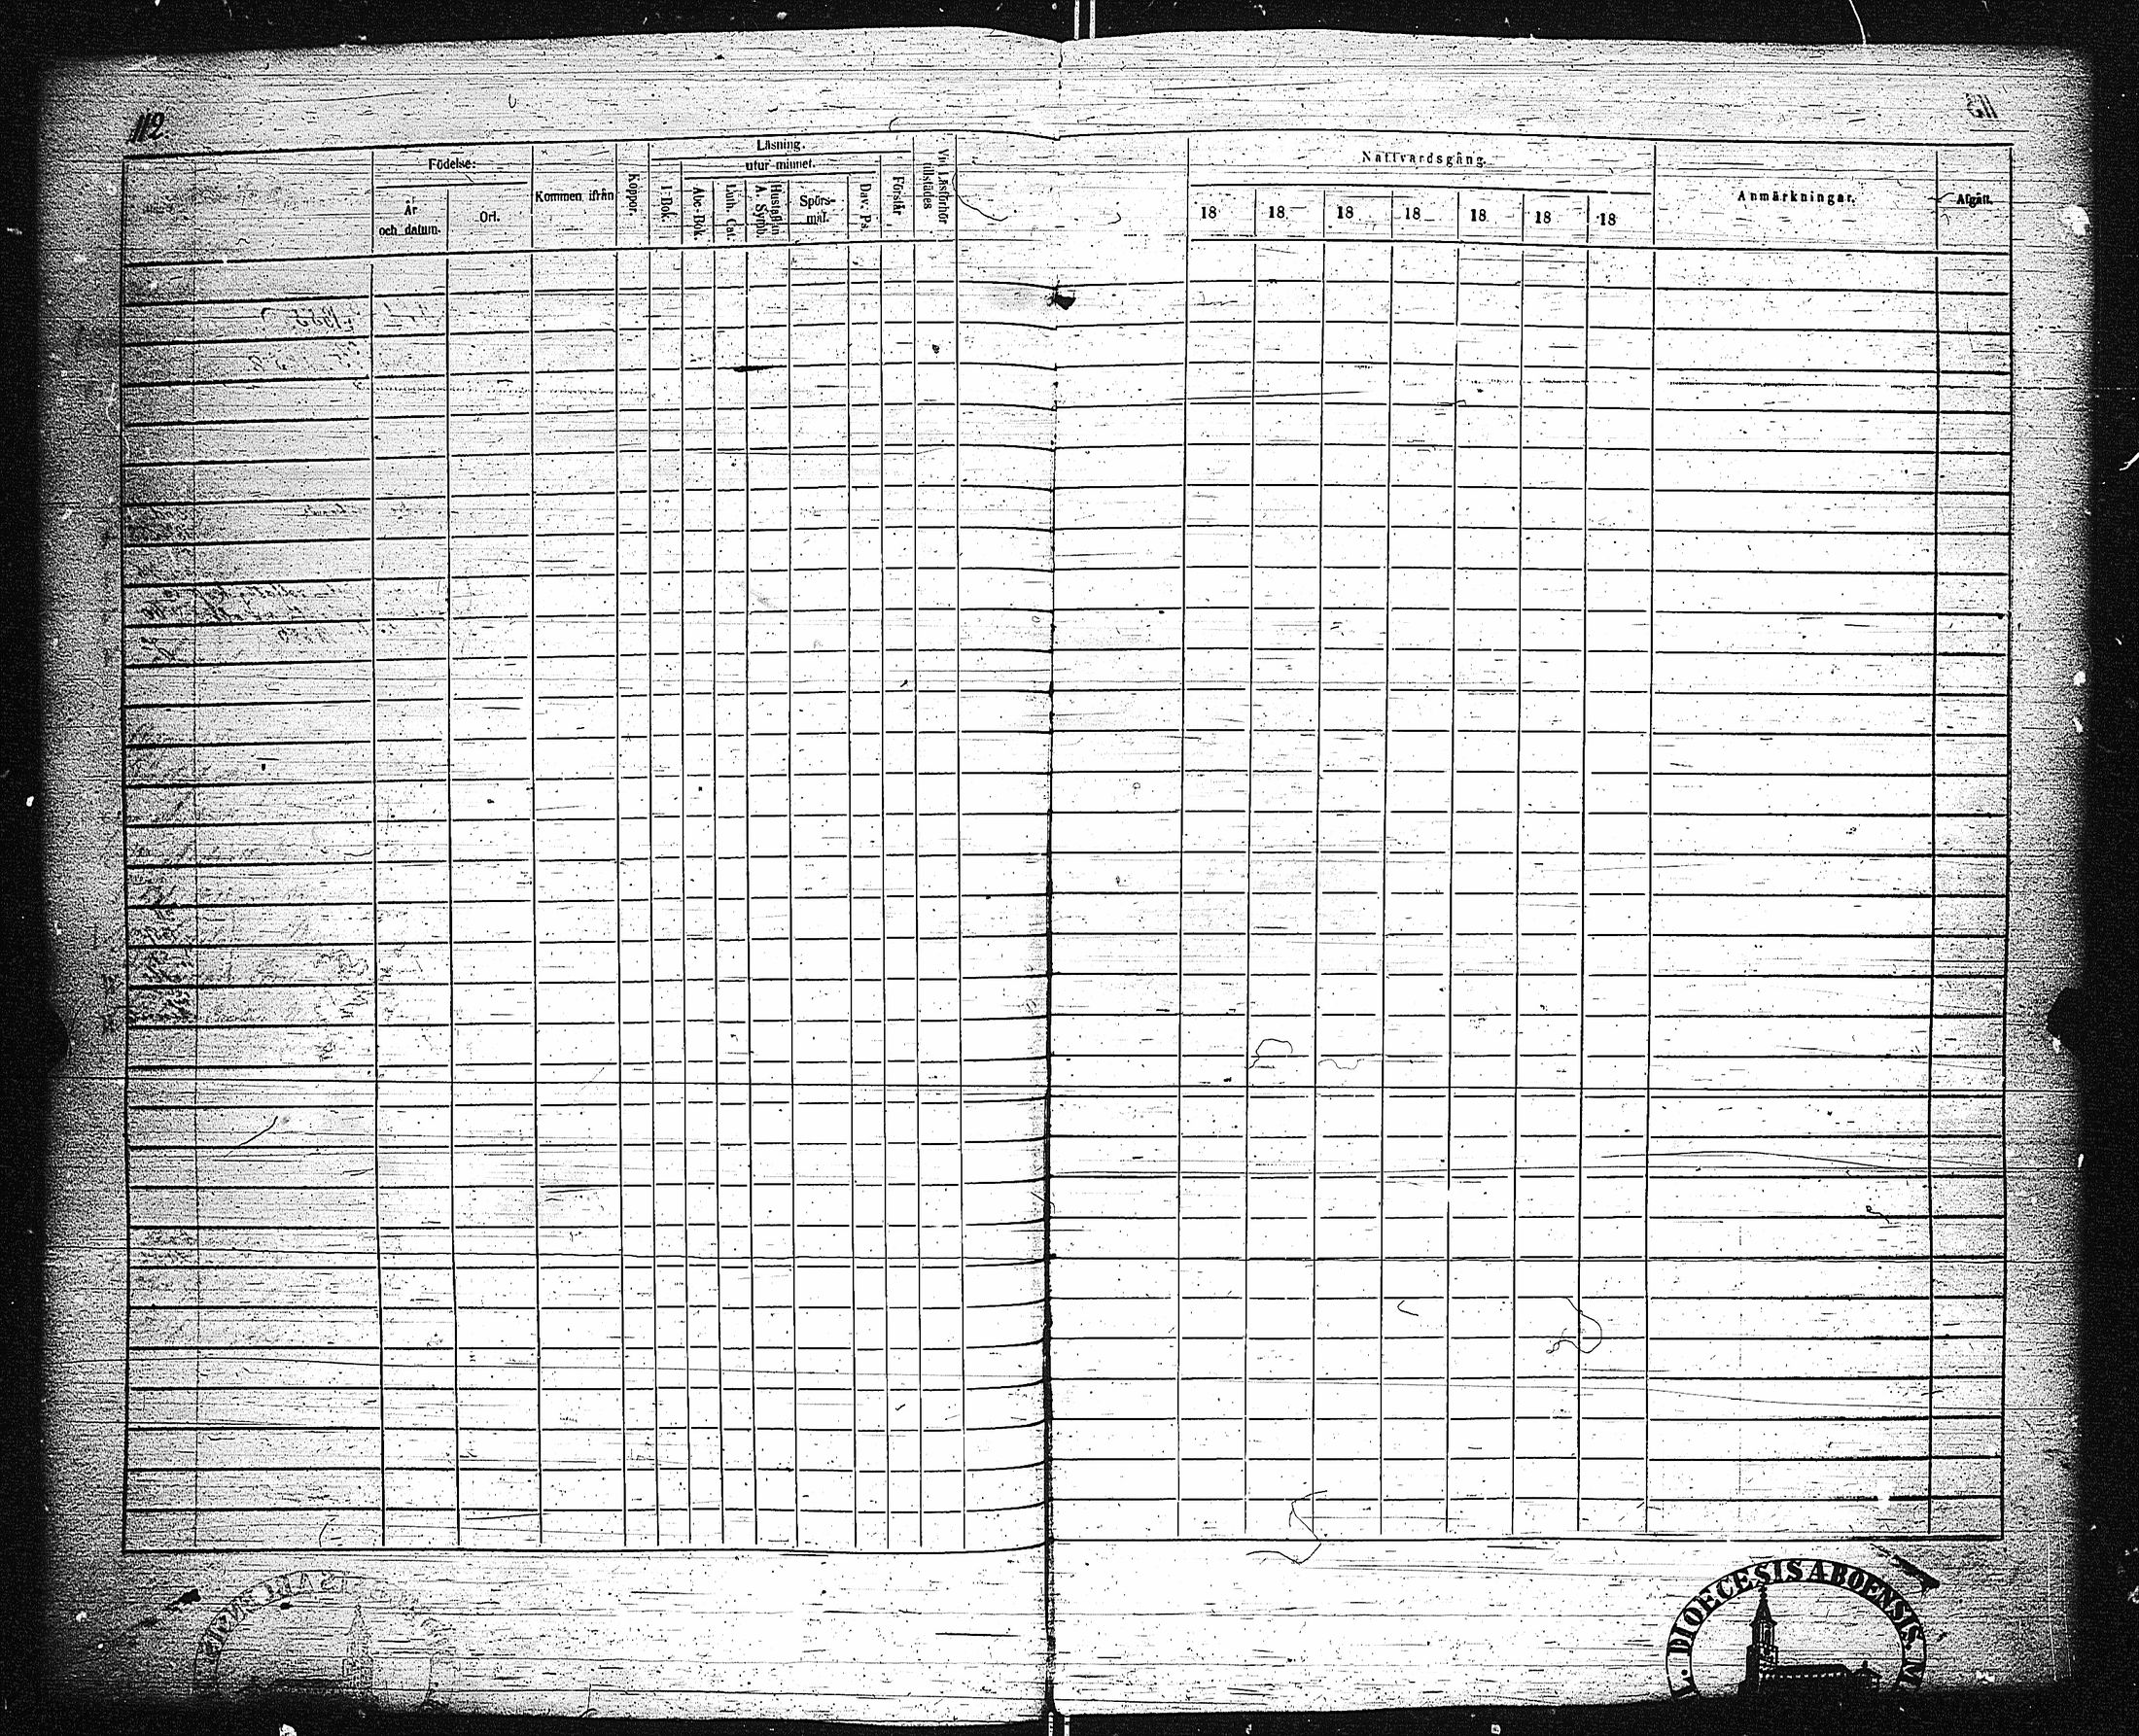 112
Födelse:
År och datum.
Ort.
Kommen ifrån
Koppor.
Läsning.
utur minnet.
I-Bok.
Abc-Bok.
Luth. Cat:
Hustaflan A. Symb.
Spörsmål.
Dav: Ps.
Förstår
Vid Läsförhör tillstädes
Nattvardsgång.
18 18 18 18 18 18 18
Anmärkningar.
Afgått.
DIOECESIS ABOENSIS